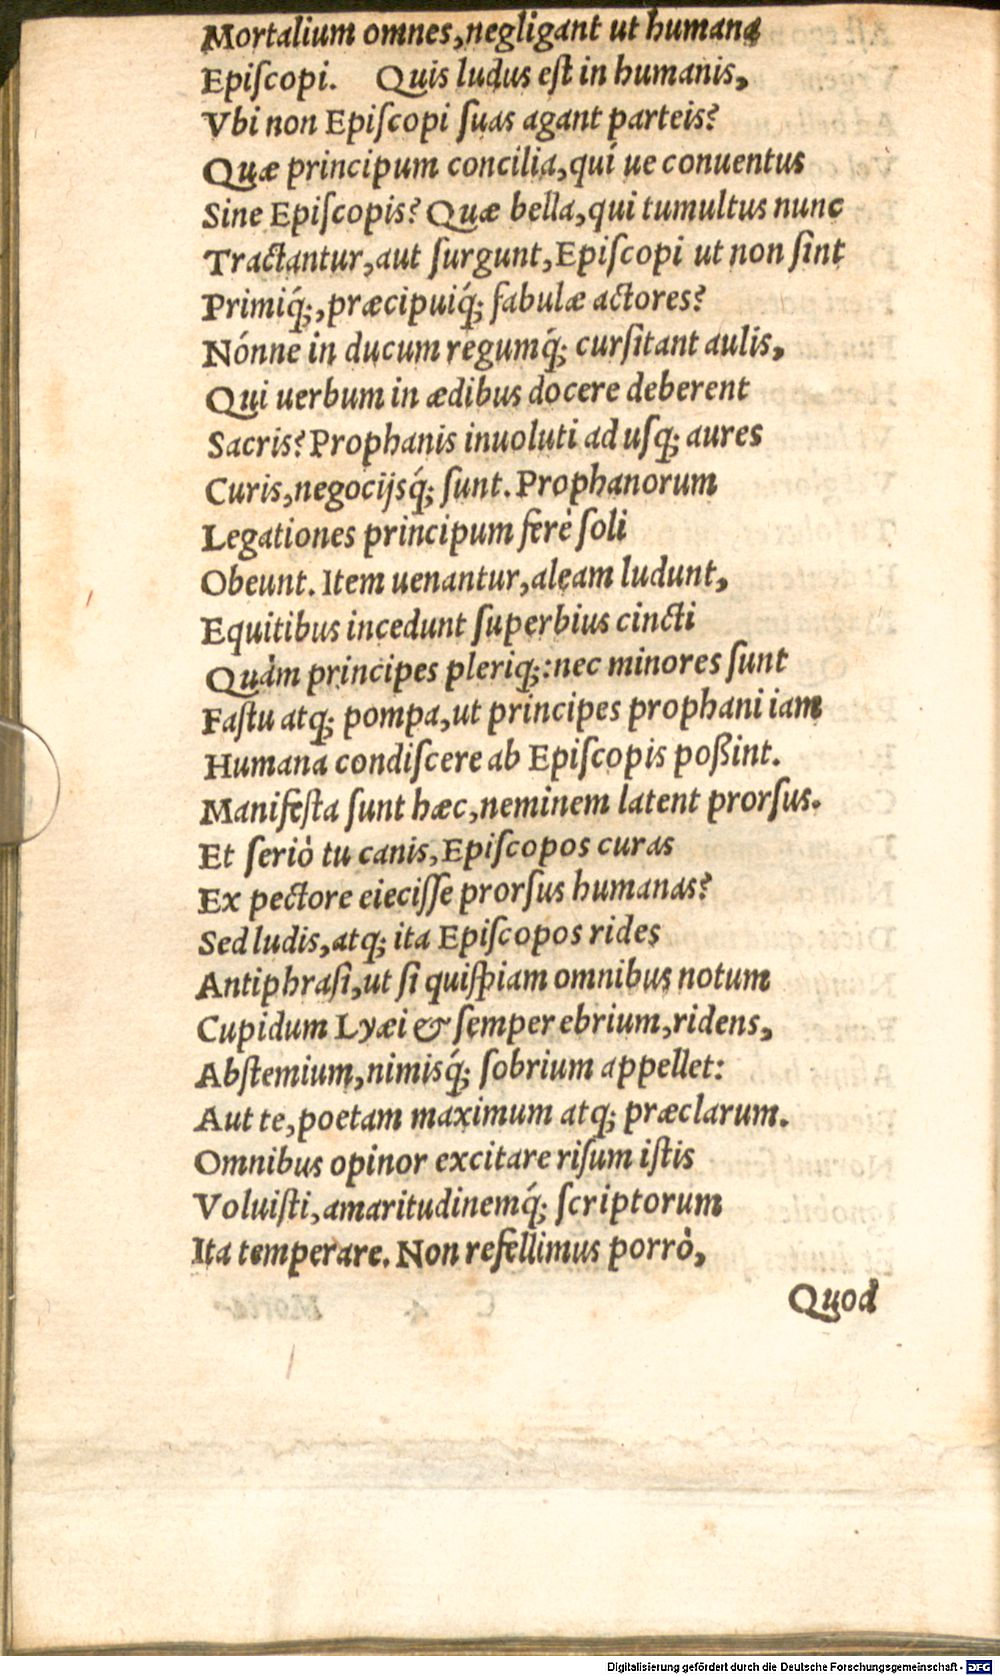 Mortalium omnes,negligant ut humana
Epiſcopi. Quis ludus eſt in humanis,
Vbi non Epiſcopi ſuas agant parteis?
Quæ principum concilia,qui ue conuentus
Sine Epiſcopis? Quæ bella,qui tumultus nunc
Tractantur,aut ſurgunt,Epiſcopi ut non ſint
Primiq́;,præcipuiq́; fabulæ actores?
Nónne in ducum regumq́; curſitant aulis,
Qui uerbum in ædibus docere deberent
Sacris? Prophanis inuoluti ad uſq; aures
Curis,negocijsq́; ſunt. Prophanorum
Legationes principum ferè ſoli
Obeunt. Item uenantur,aleam ludunt,
Equitibus incedunt ſuperbius cincti
Quàm principes pleriq;:nec minores ſunt
Faſtu atq; pompa,ut principes prophani iam
Humana condiſcere ab Epiſcopis poßint.
Manifeſta ſunt hæc,neminem latent prorſus.
Et ſeriò tu canis,Epiſcopos curas
Ex pectore eieciſſe prorſus humanas?
Sed ludis,atq; ita Epiſcopos rides
Antiphraſi,ut ſi quiſpiam omnibus notum
Cupidum Lyæi & ſemper ebrium,ridens,
Abſtemium,nimisq́; ſobrium appellet:
Aut te,poetam maximum atq; præclarum.
Omnibus opinor excitare riſum iſtis
Voluiſti,amaritudinemq́; ſcriptorum
Ita temperare. Non refellimus porrò,
Quod
Digitalisierung gefördert durch die Deutsche Forschungsgemeinschaft - DFG